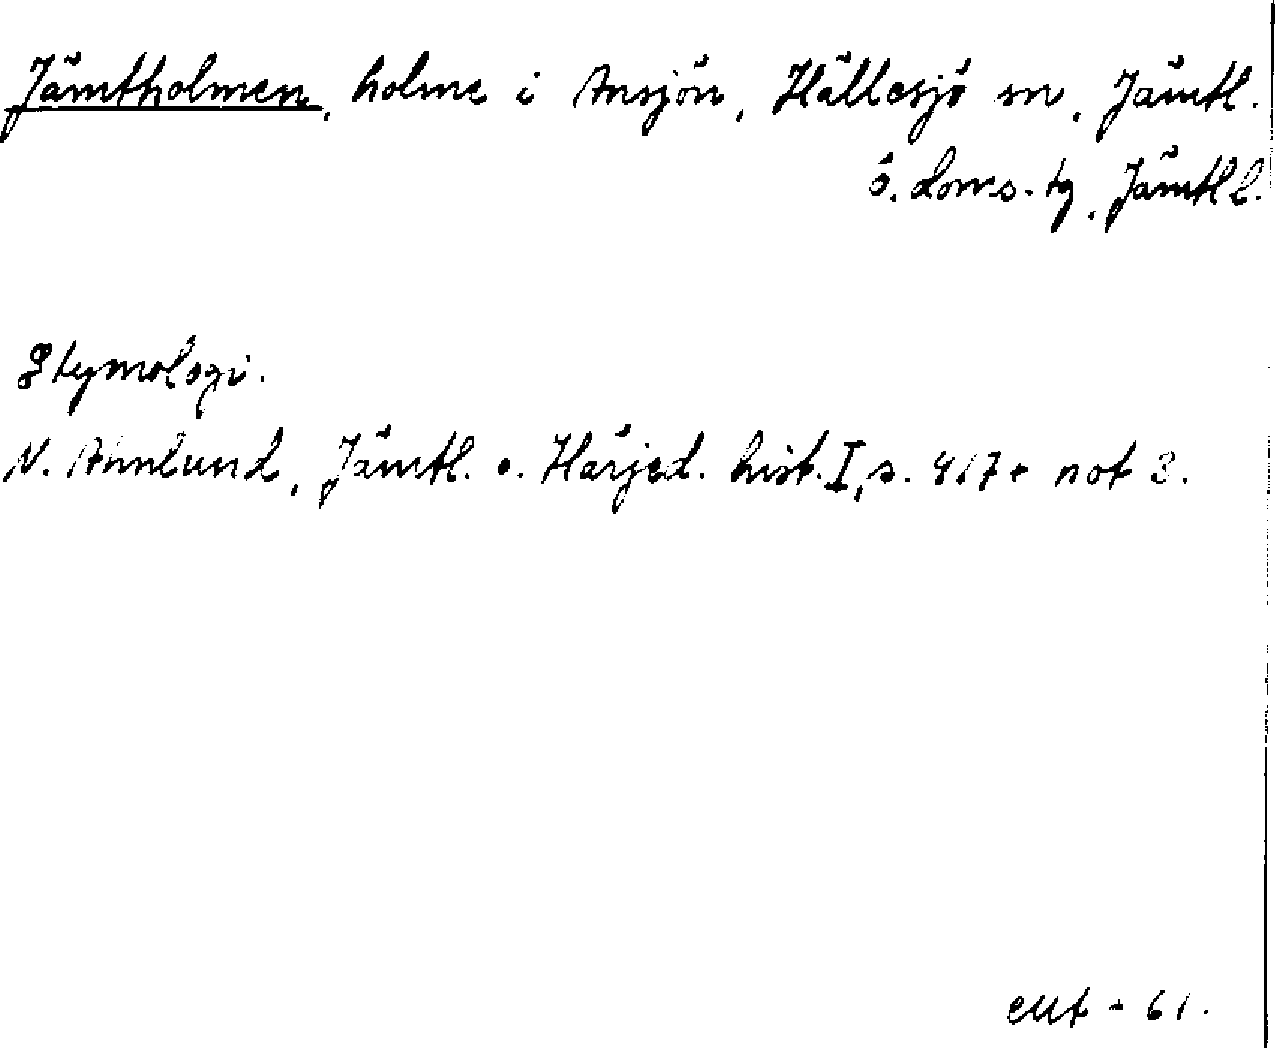 Jämtholmen, holme i Ansjön, Hällesjö sn, Jämtl.
ö. doms.-tg, Jämtl l.
Etymologi.
N. Ahnlund, Jämtl. o. Härjed. hist. I, s. 417 + not 3.
EUt - 61.